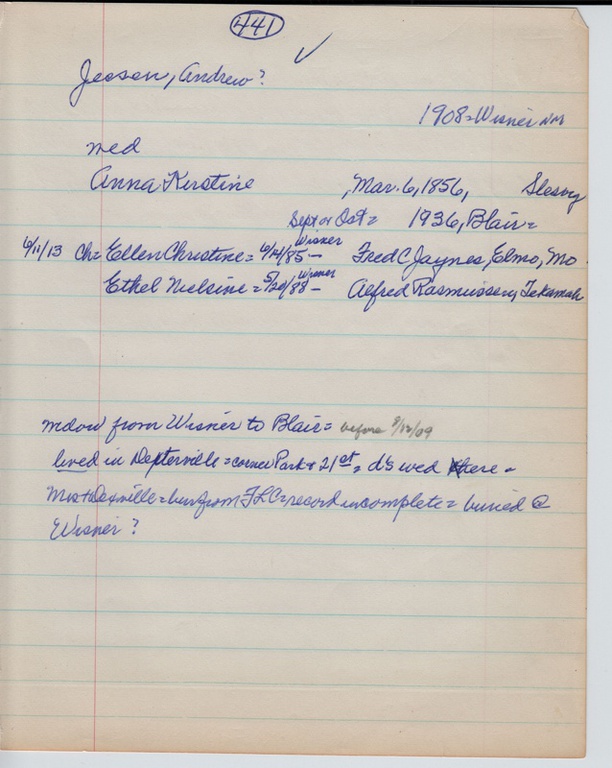 441 ✓
Jessen, Andrew?
1908=Wisner
med
Anna Kirstine ,Mar. 6, 1856, Slesvig
Sept or Oct= 1936, Blair=
6/11/13 Ch= Ellen Christine= 6/14/85- Wisner Fred C Jaynes, Elmo, Mo.
Ethel Nielsine= 5/20/88- Wisner Alfred Rasmussen, Tekamah
from Wisner to Blair= before 9/12/09
lived in Dexterville= corner Park & 21st, wed there-
FLC= record incomplete= buried @
Wisner?